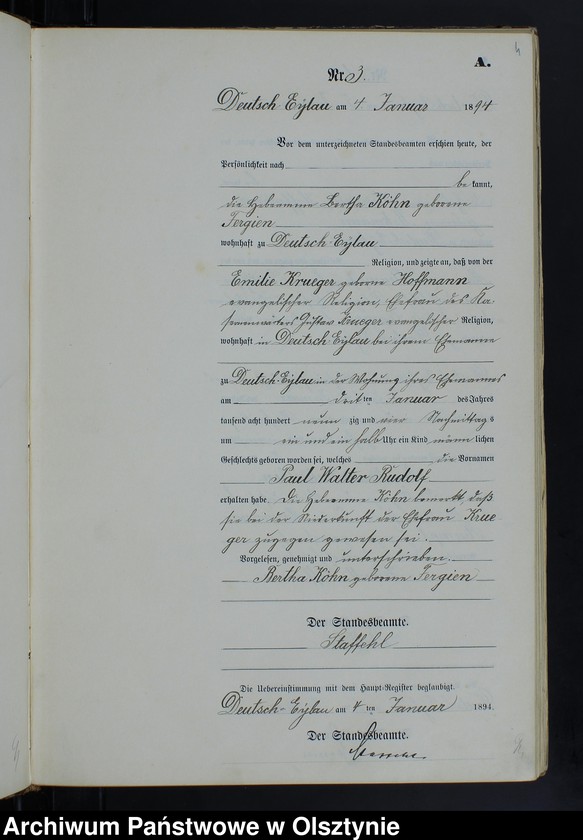 A.
Nr. 3.
Deutsch Eylau am 4 Januar 1894
Vor dem unterzeichneten Standesbeamten erschien heute, der
Persönlichkeit nach
be kannt,
die Hebeamme Bertha Köhn geborene
Tergien
wohnhaft zu Deutsch-Eylau
Religion, und zeigte an, daß von der
Emilie Krueger geborne Hoffmann
evangelischer Religion, Ehefrau des Ka
sernenwärters Gustav Krueger evangelischer Religion,
wohnhaft in Deutsch Eylau bei ihrem Ehemanne
zu Deutsch-Eylau in der Wohnung ihres Ehemannes
am dritten Januar des Jahres
tausend acht hundert neunzig und vier Nachmittags
um ein und ein halb Uhr ein Kind männlichen
Geschlechts geboren worden sei, welches die Vornamen
Paul Walter Rudolf
erhalten habe. Die Hebeamme Köhn bemerkt, daß
sie bei der Niederkunft der Ehefrau Krue-
ger zugegen gewesen sei.
Vorgelesen, genehmigt und unterschrieben.
Bertha Köhn geborene Tergien
Der Standesbeamte.
Staffehl
Die Uebereinstimmung mit dem Haupt-Register beglaubigt.
Deutsch-Eylau am 4ten Januar 1894.
Der Standesbeamte.
Archiwum Państwowe w Olsztynie